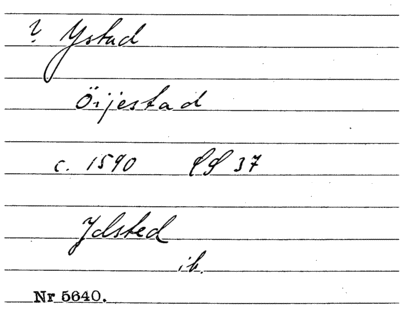 ? Ystad
Öijestad
c. 1590 SS 37
Ydsted
ib.
Nr 5640.